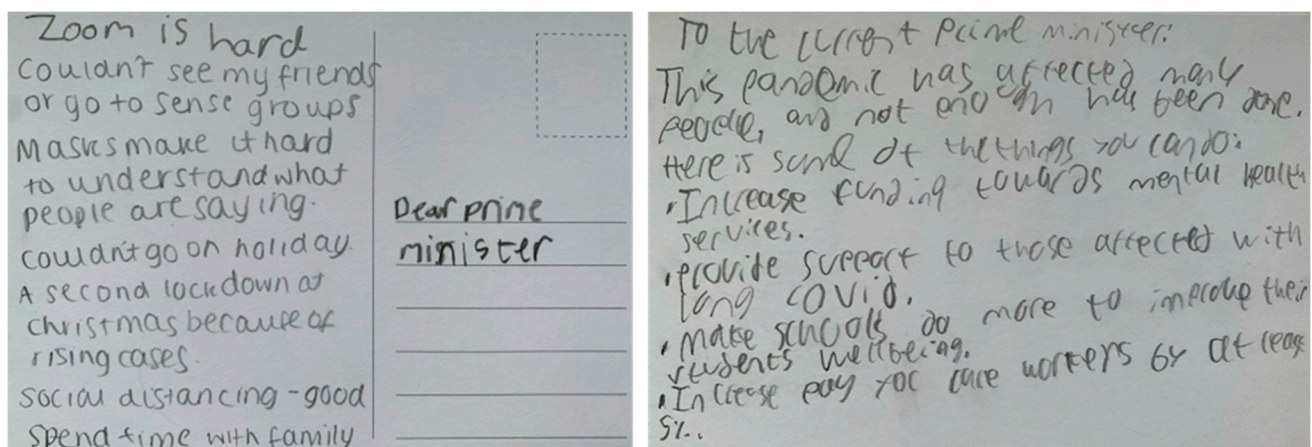 Zoom is hard
Couldn't see my friends
or go to sense groups
Masks make it hard
to understand what
people are saying.
couldn't go on holiday.
A second lockdown at
christmas because of
rising cases.
social distancing - good
spend time with family
Dear prime
minister
To the current prime minister:
This pandemic has affected many
people, and not enough has been done.
Here is some of the things you can do:
• Increase funding towards mental health
services.
• provide support to those affected with
long covid.
• make schools do more to improve their
students wellbeing.
• Increase pay for care workers by at least
5%.